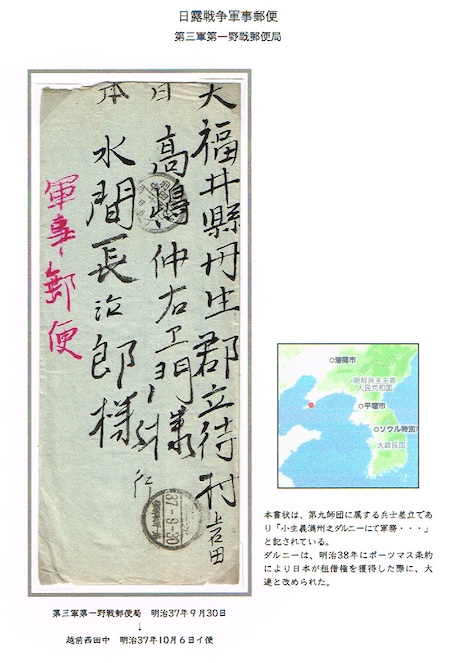 日露戦争軍事郵便
第三軍第一野戦郵便局
大日本
福井縣丹生郡立待村
吉田
高嶋仲右エ門様
水間長治郎様
行
軍事郵便
37-9-30
瀋陽市
朝鮮民主主義
人民共和国
平壌市
ソウル特別市
大韓民国
本書状は、第九師団に属する兵士差立であ
り「小生義満州之ダルニーにて軍務・・・」
と記されている。
ダルニーは、明治38年にポーツマス条約
により日本が租借権を獲得した際に、大
連と改められた。
第三軍第一野戦郵便局 明治37年9月30日
↓
越前西田中 明治37年10月6日イ便